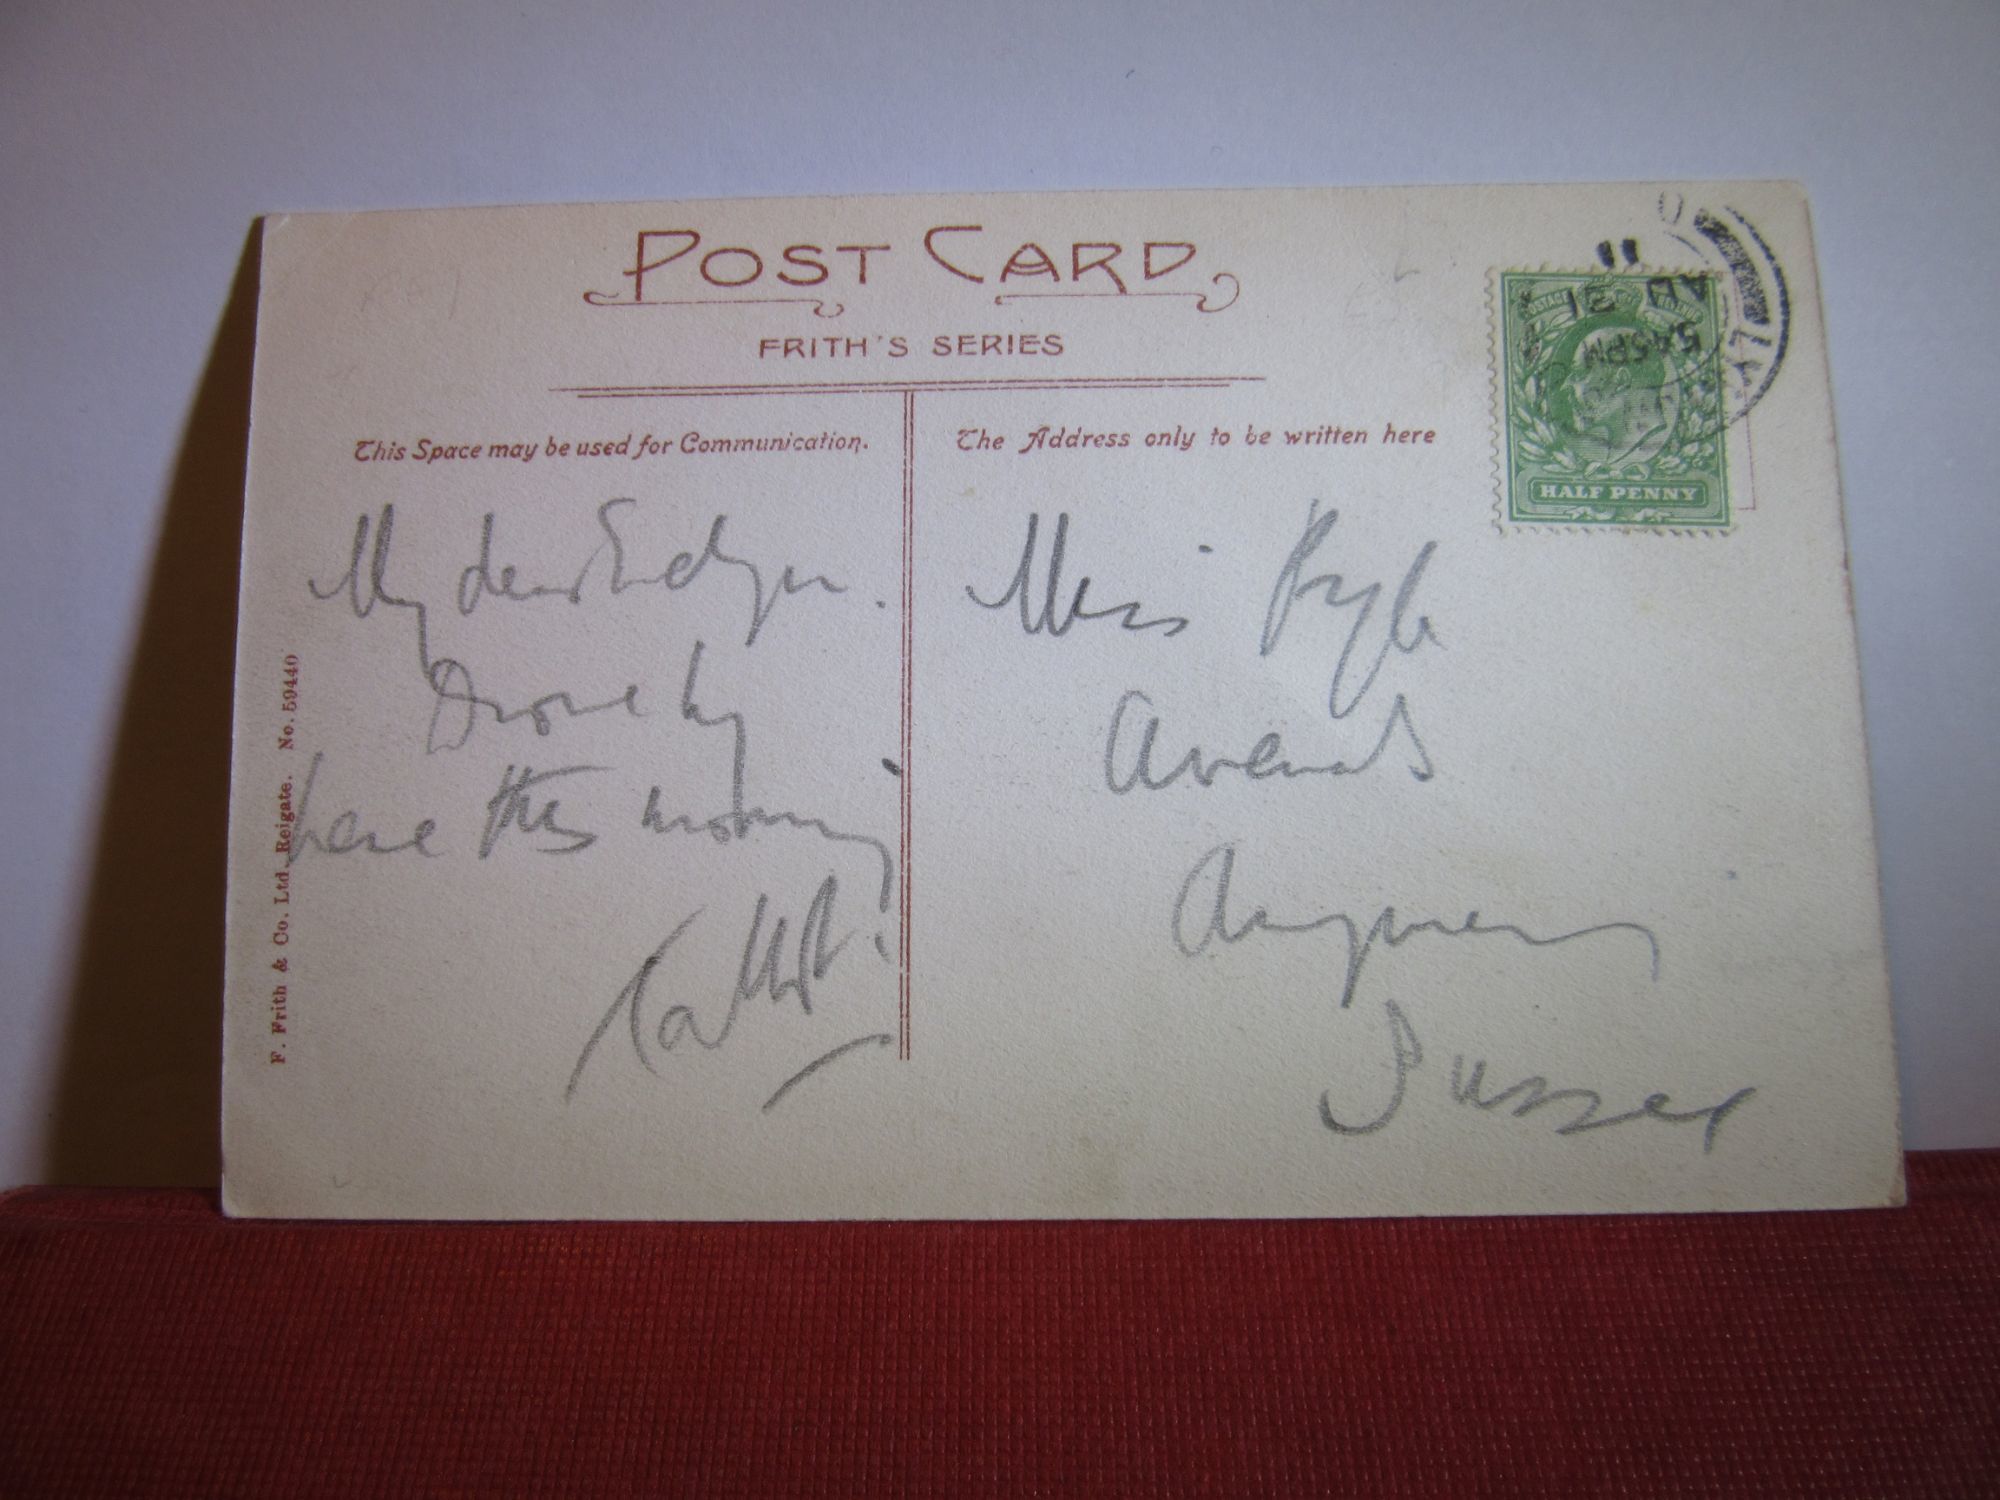 POST CARD
FRITH'S SERIES
This Space may be used for Communication.
The Address only to be written here
POSTAGE REVENUE
HALF PENNY
5.45PM
AU 21
11
My dear
Drove by
here this morning
Miss Pyle
Angmering
Sussex
F. Frith & Co. Ltd. Reigate. No. 59440